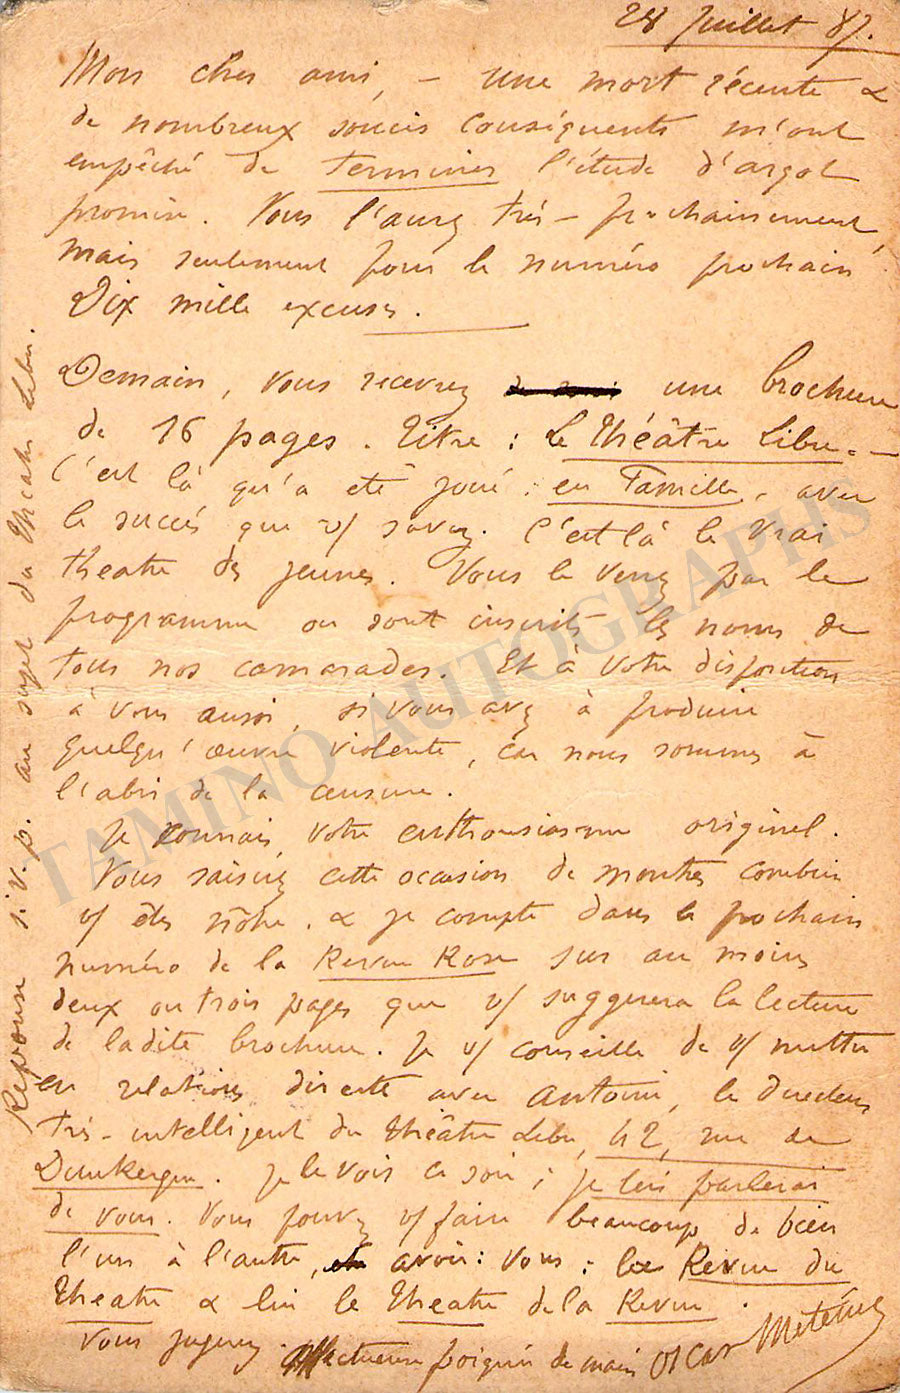 28 Juillet 87.
Mon cher ami, – une mort récente &
de nombreux soucis conséquents m'ont
empêché de terminer l'étude d'argot
promise. Vous l'aurez très-prochainement,
mais seulement pour le numéro prochain
Dix mille excuses.
Demain, vous recevrez une brochure
de 16 pages. Titre : Le Théâtre Libre. –
C'est là qu'a été joué : en Famille, avec
le succès que v/ savez. C'est là le vrai
theatre des jeunes. Vous le verrez par le
programme ou sont inscrits les noms de
tous nos camarades. Et à votre disposition
à vous aussi, si vous avez à produire
quelqu'œuvre violente, car nous sommes à
l'abri de la censure.
Je connais votre enthousiasme originel.
Vous saisirez cette occasion de montrer combien
v/ êtes nôtre. & je compte dans le prochain
numéro de la Revue Rose sur au moins
deux ou trois pages que v/ suggerera la lecture
de ladite brochure. Je v/ conseille de v/ mettre
en relations directe avec Antoine, le directeur
très-intelligent du Théâtre Libre, 42, rue de
Dunkerque. Je le vois ce soir ; je lui parlerai
de vous. Vous pouvez v/ faire beaucoup de bien
l'un à l'autre, avoir : vous : la Revue du
Theatre & lui le Theatre de la Revue.
Vous jugerez.
Affectueuse poignée de main Oscar Méténier
Réponse s.v.p. au sujet du Theatre Libre.
TAMINO AUTOGRAPHS